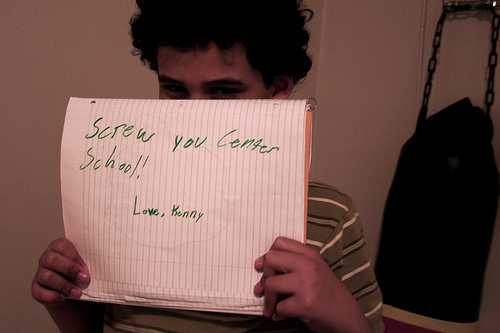 Screw you Center
School!
Love, Kenny